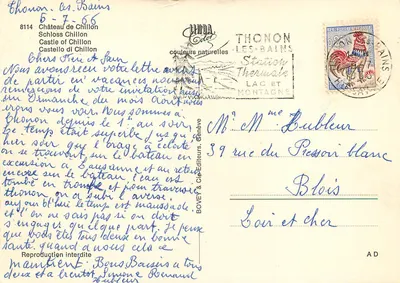 Thonon-les-Bains
6-7-66
8114 Château de Chillon
Schloss Chillon
Castle of Chillon
Castello di Chillon
couleurs naturelles
THONON
LES-BAINS
Station
Thermale
LAC ET
MONTAGNE
Chers et
Nous avons reçu votre lettre avant
de partir en vacances nous vous
remercions de votre invitation
un Dimanche du mois d'août nous
irons vous voir Nous sommes à
Thonon depuis le 1er au soir
le temps était superbe jusqu'à
hier soir que l'orage a éclaté
on se trouvait sur le bateau en
excursion à Lausanne et au retour
encore sur le bateau l'eau est
tombé en trombe et pour traverser
thonon, on a subi l'averse.
aujourd'hui le temps est maussade.
et l'on ne sais pas si on doit
s'engager quelque part. Je pense
que vous êtes tous deux en bonne
santé. quand à nous cela se
maintient. Bons Baisers à tous
deux et à bientôt. Simone
Hubleur
BOVET & Cie Editeurs, Genève
Mr Mme Hubleur
39 rue du Pressoir blanc
Blois
Loir et cher
Reproduction interdite
A D